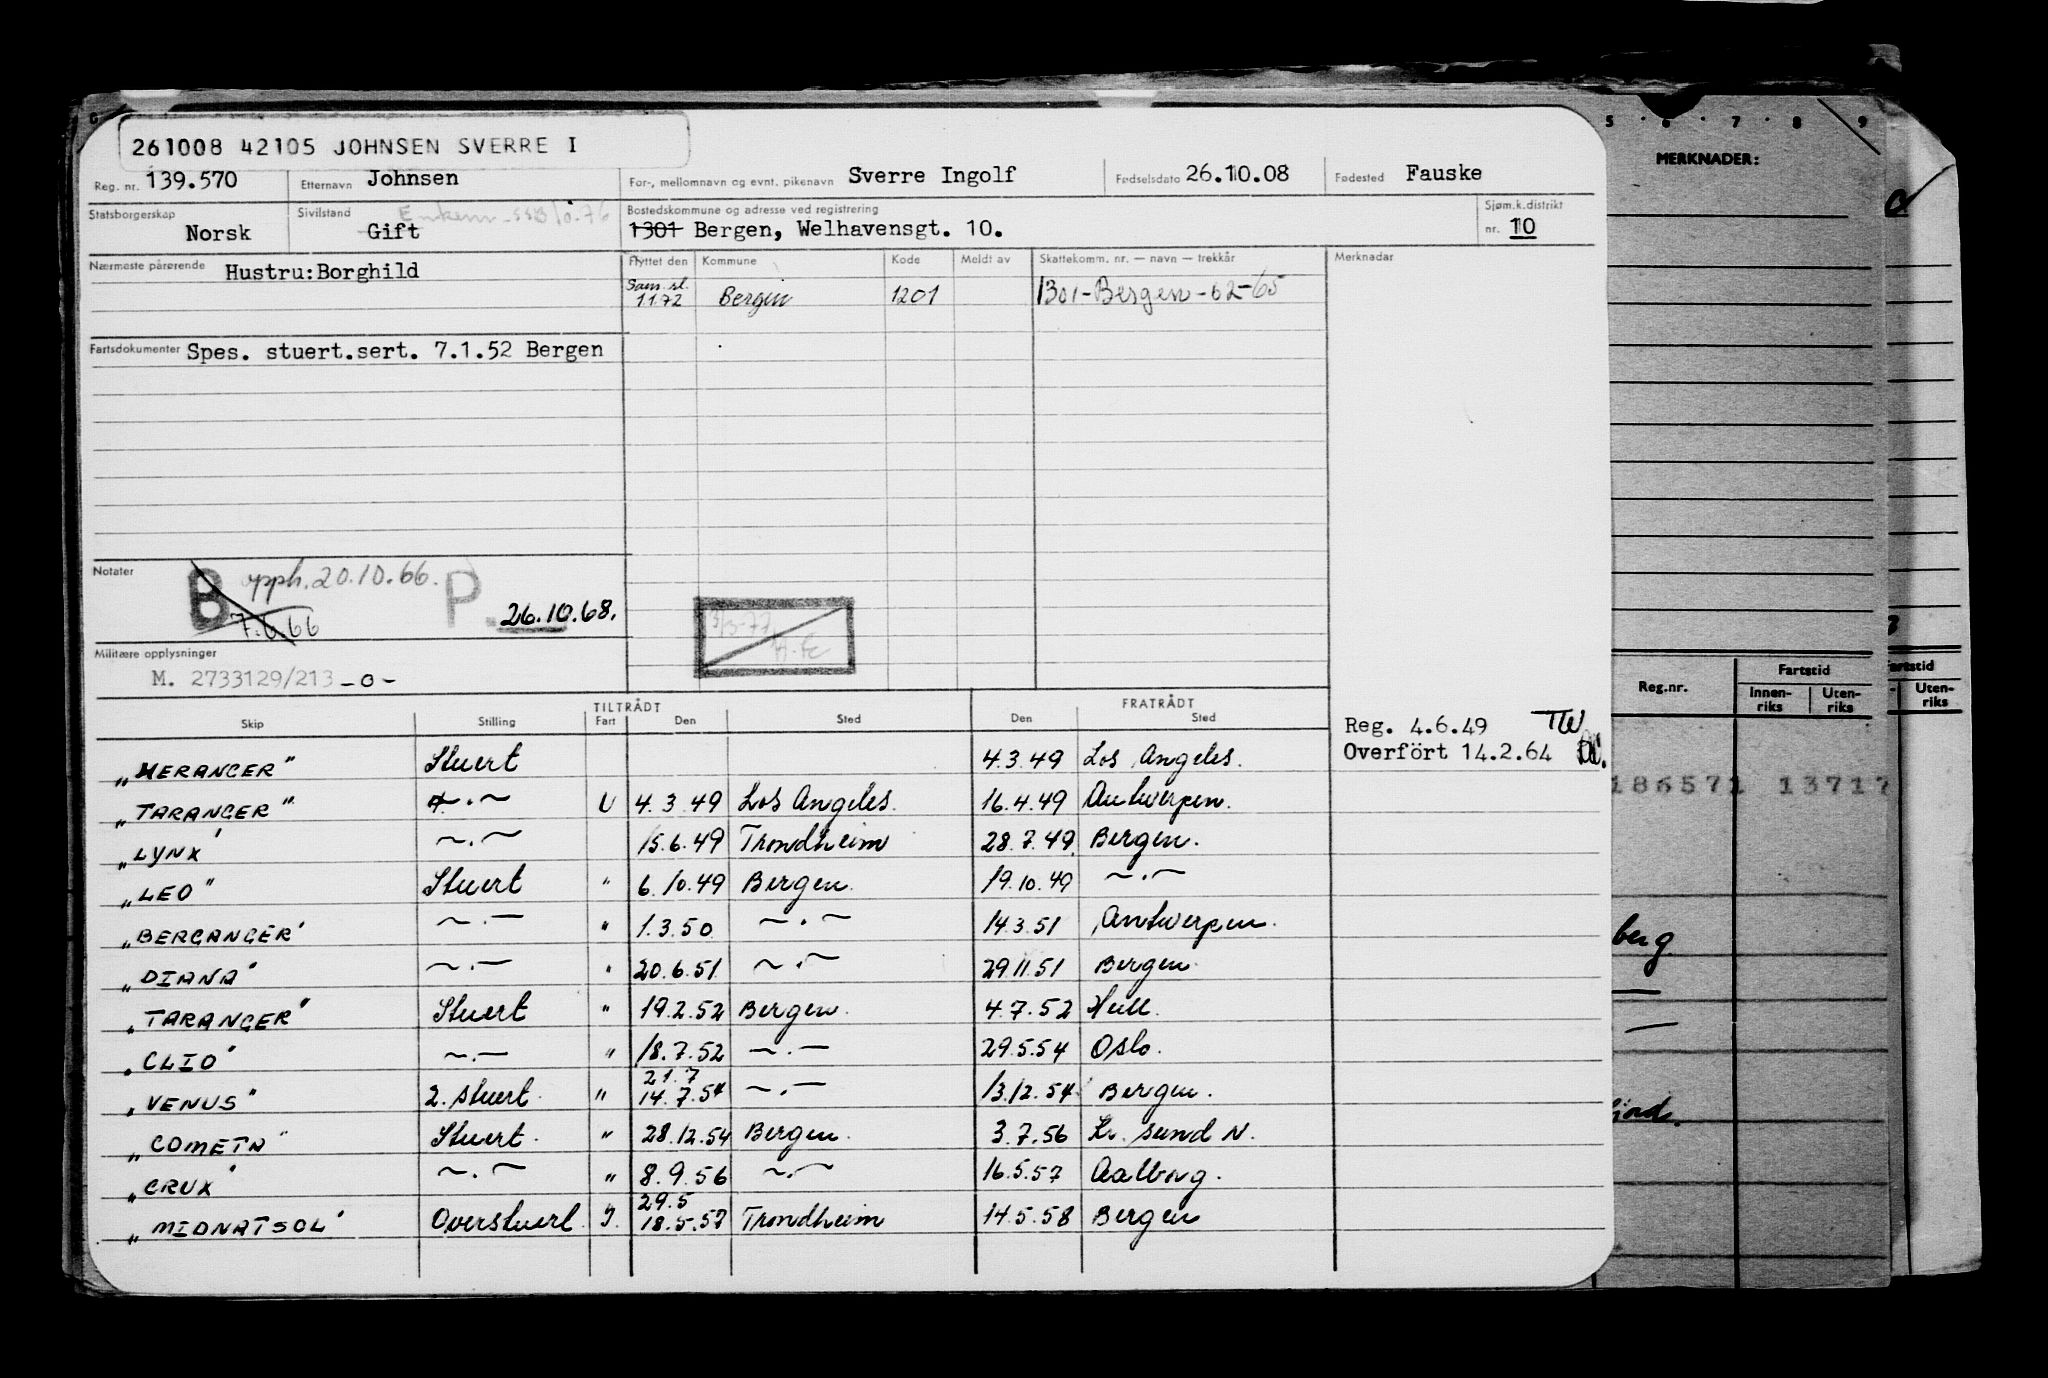 261008 42105 JOHNSEN SVERRE I
Reg. nr. 139.570 Etternavn Johnsen For-, mellomnavn og evnt. pikenavn Sverre Ingolf Fødselsdato 26.10.08 Fødested Fauske
Statsborgerskap Norsk Sivilstand Gift Bostedskommune og adresse ved registrering 1301 Bergen, Welhavensgt. 10. Sjøm.k.distrikt nr. 10
Nærmeste pårørende Hustru:Borghild Flyttet den Kommune Kode Meldt av Skattekomm. nr. — navn — trekkår Merknader
Sam. sl.
1172 Bergen 1201 1301-Bergen-62-65
Fartsdokumenter Spes. stuert.sert. 7.1.52 Bergen
Notater B opph. 20.10.66. P. 26.10.68.
7.6.66
Militære opplysninger
M. 2733129/213 -0-
TILTRÅDT FRATRÅDT
Skip Stilling Fart Den Sted Den Sted
Reg. 4.6.49 TW
Overfört 14.2.64
„HERANGER" Stuert 4.3.49 Los Angeles.
„TARANGER" ~.~ U 4.3.49 Los Angeles. 16.4.49 Antwerpen.
„LYNX' ~.~ 15.6.49 Trondheim 28.7.49. Bergen.
„LEO" Stuert " 6.10.49 Bergen. 19.10.49 ~.~
„BERGANGER' ~.— " 1.3.50 ~.~ 14.3.51 Antwerpen.
„DIANA" ~.— " 20.6.51 ~.~ 29.11.51 Bergen
„TARANGER" Stuert " 19.2.52 Bergen. 4.7.52 Hull.
„CLIO" ~.— " 18.7.52 ~.— 29.5.54 Oslo.
21.7
„VENUS" 2. stuert " 14.7.54 ~.— 13.12.54 Bergen.
„COMETA" Stuert. " 28.12.54 Bergen. 3.7.56 Kr. sund N.
„CRUX" ~.~ " 8.9.56 ~.~ 16.5.57 Aalborg.
29.5
„MIDNATSOL" Overstuert J. 18.5.57 Trondheim 14.5.58 Bergen
5 · 6 · 7 · 8 · 9
MERKNADER:
Reg.nr. Fartstid
Innen-riks Uten-riks
186571 13717
berg
Fartstid
Uten-riks